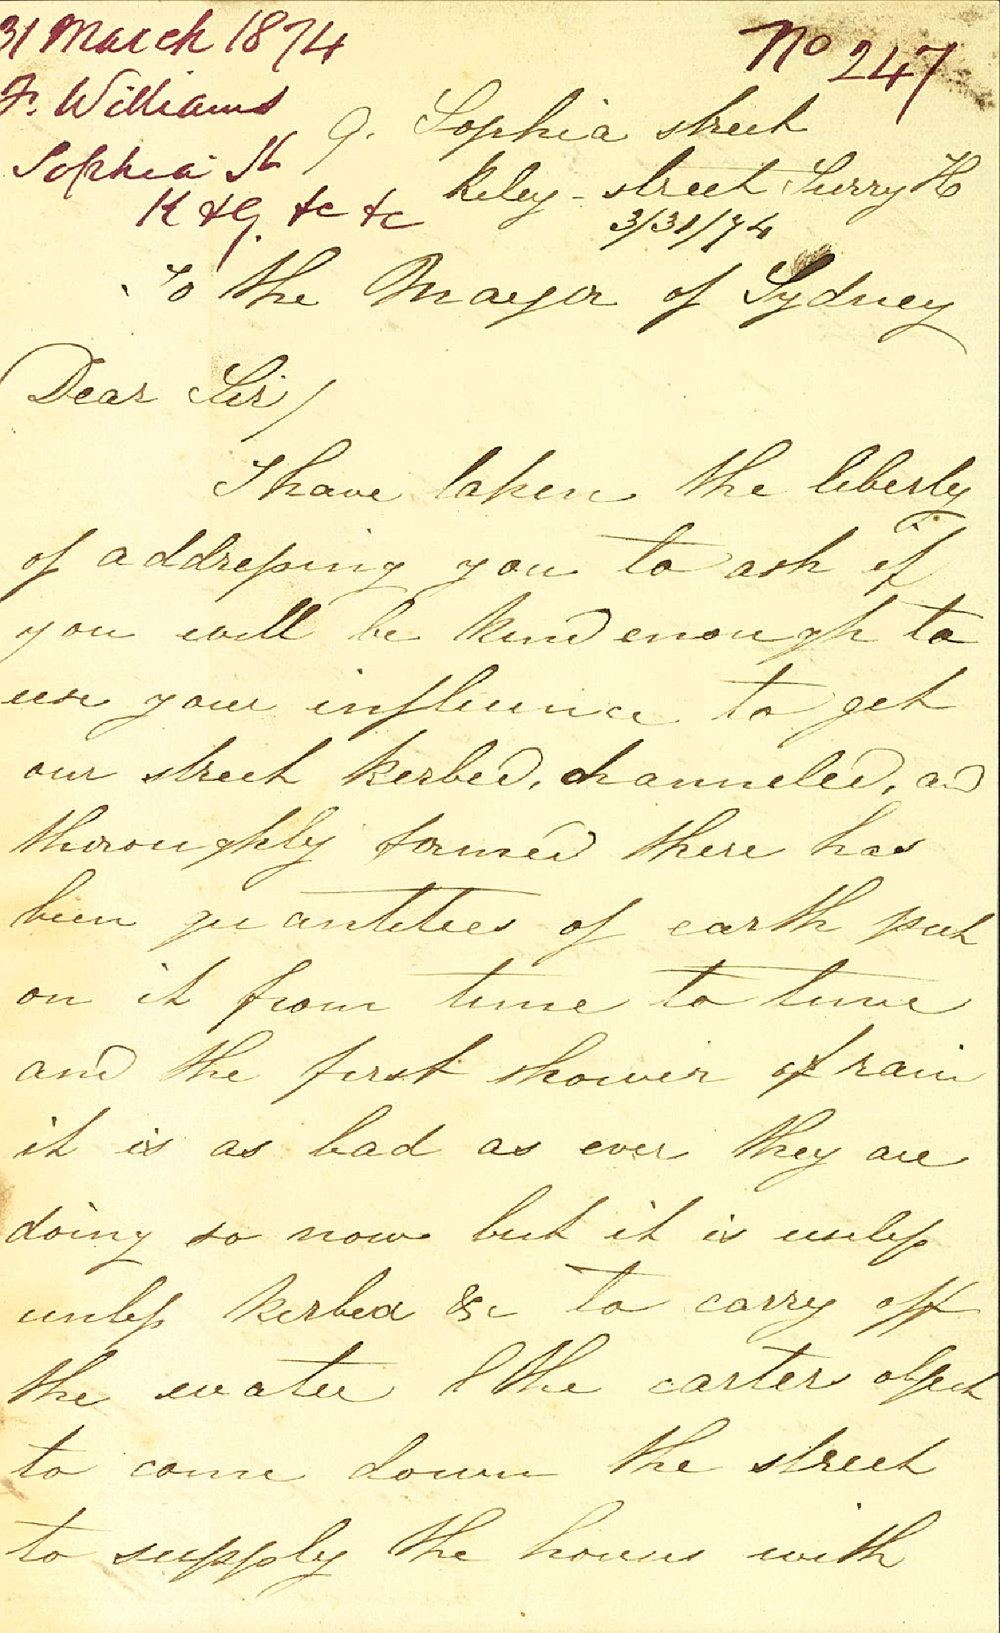 31 March 1874
No 247
F. Williams
Sophia St
K & G. &c &c
9. Sophia street
Riley - street Surry H
3/31/74
To the Mayor of Sydney
Dear Sir/
I have taken the liberty
of addressing you to ask if
you will be kind enough to
use your influence to get
our street kerbed, channeled, and
thoroughly formed there has
been quantities of earth put
on it from time to time
and the first shower of rain
it is as bad as ever they are
doing so now but it is usless
unless kerbed &c to carry off
the water & the carters object
to come down the street
to supply the houses with